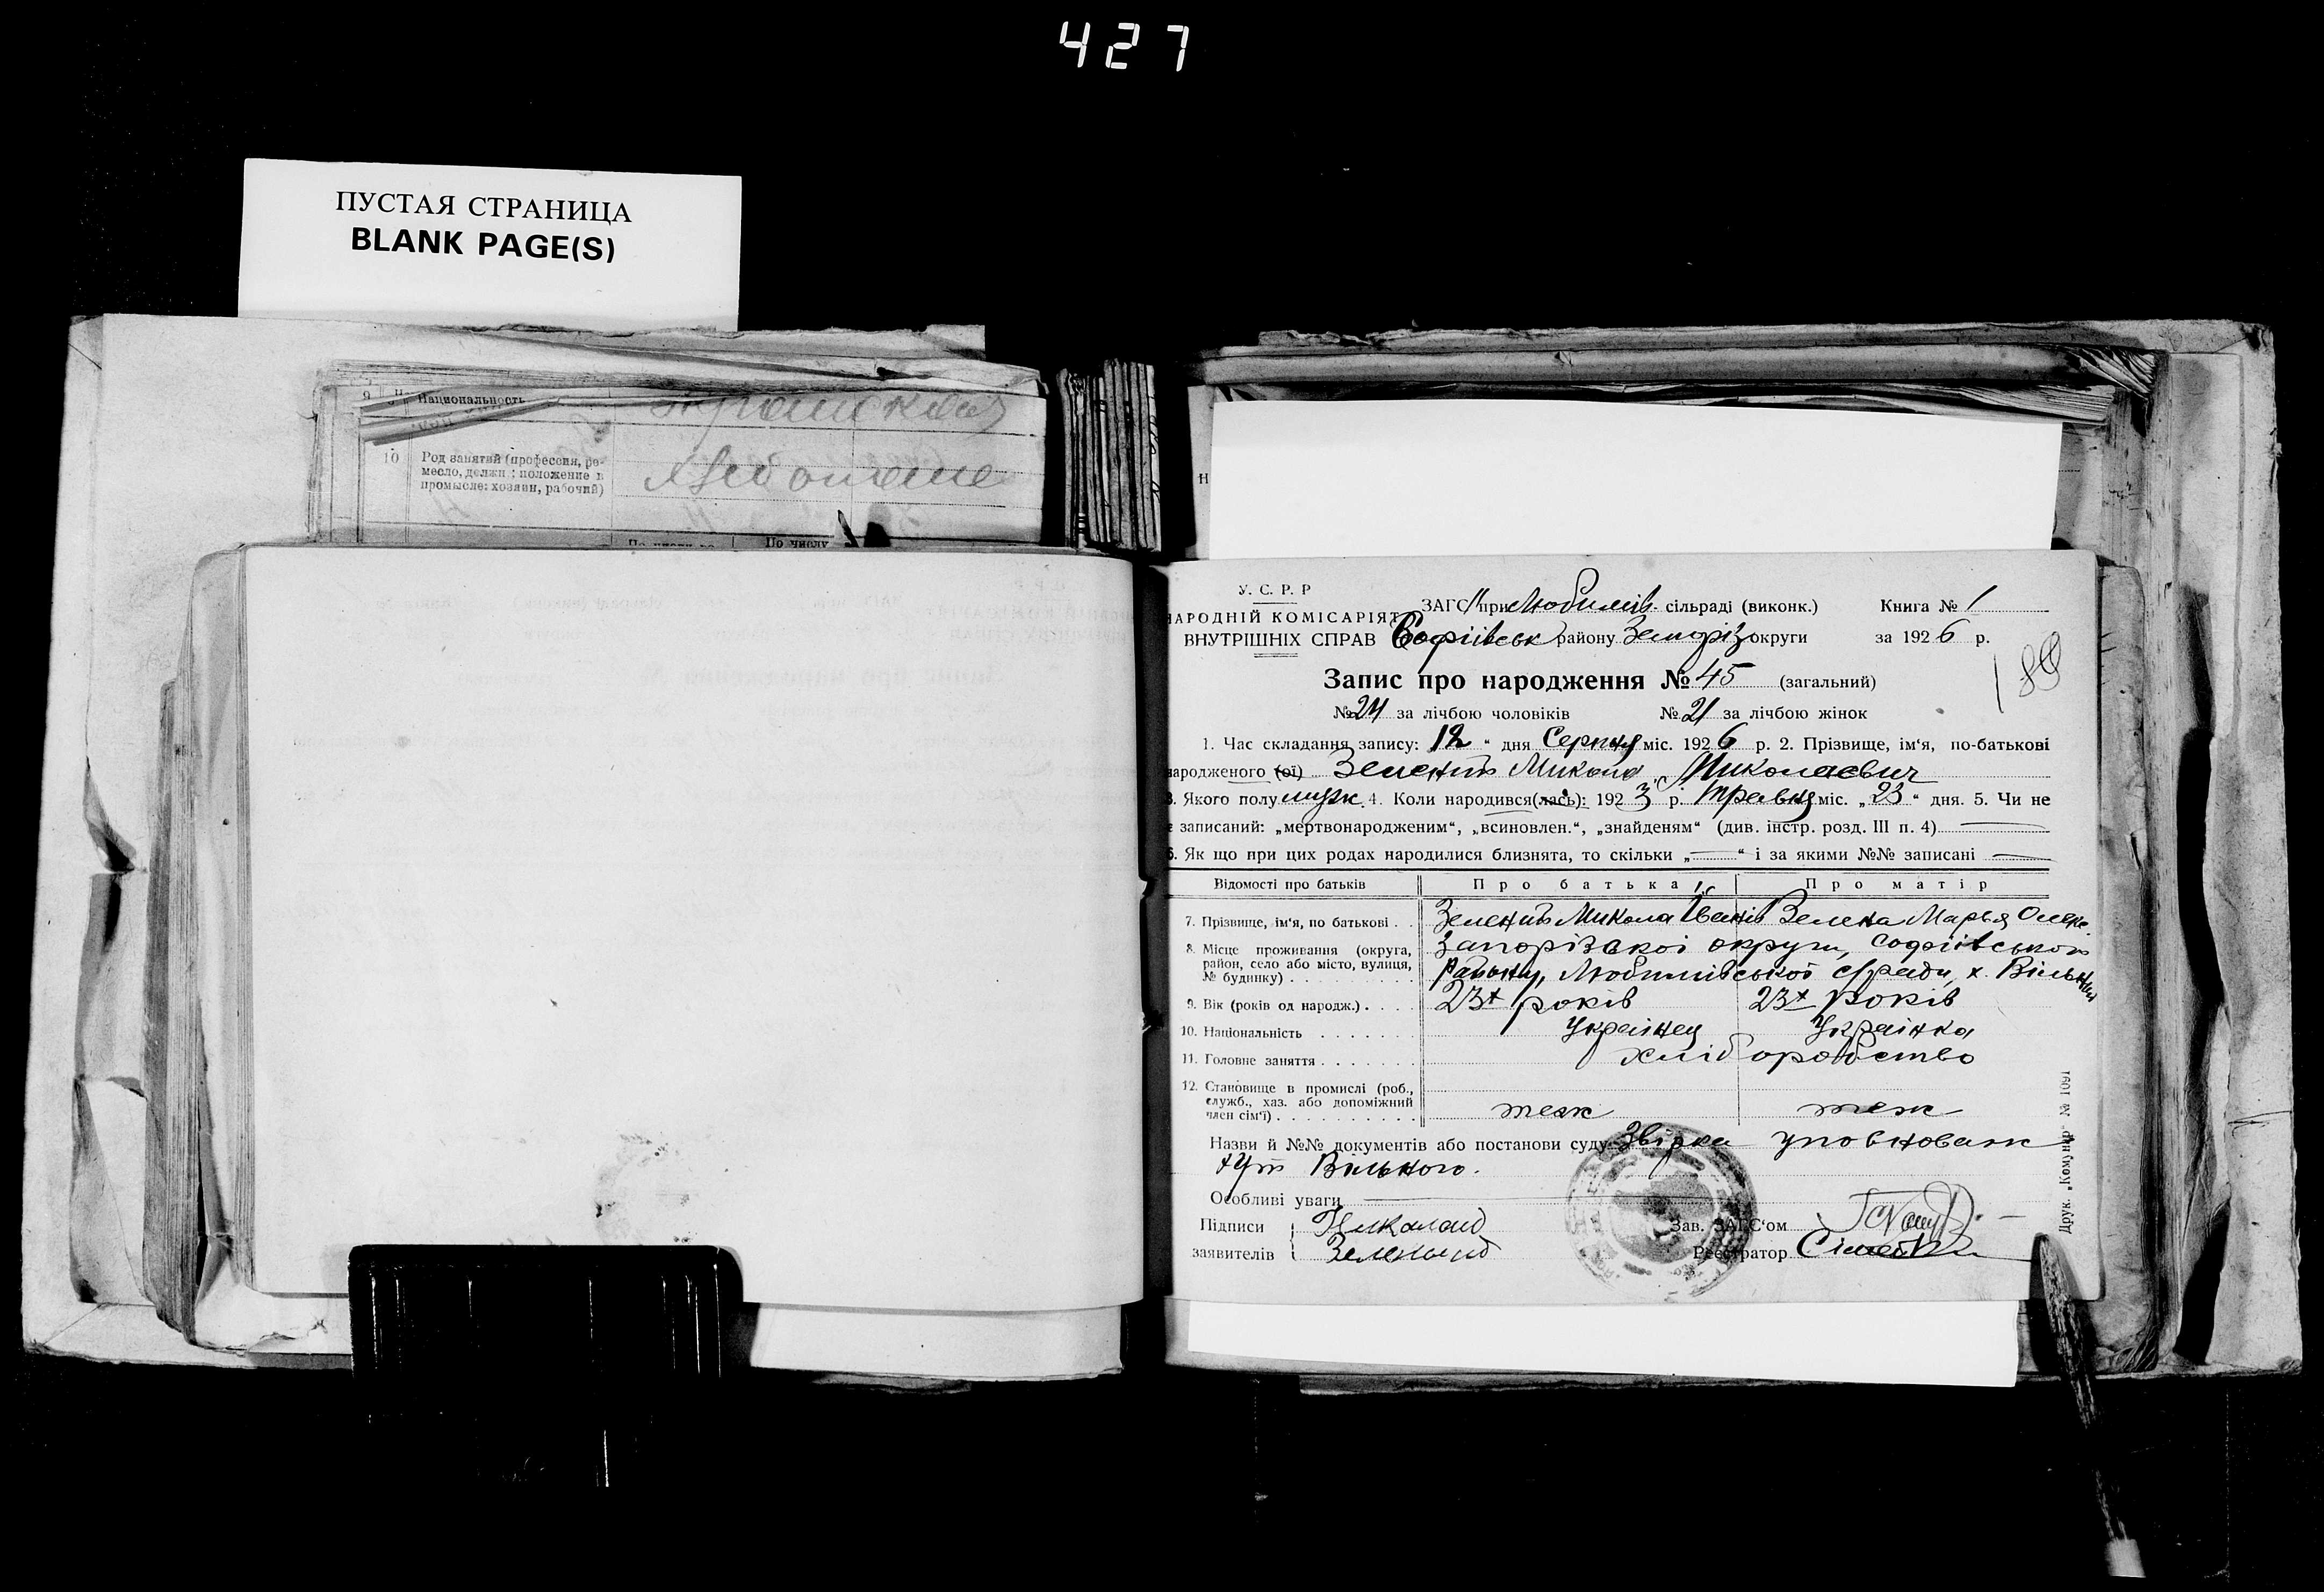 427
ПУСТАЯ СТРАНИЦА
BLANK PAGE(S)
Национальность
10 Род занятий (профессия, ре-
месло, должн.; положение в
промысле: хозяин, рабочий)
По числу
У. С. Р. Р
НАРОДНІЙ КОМІСАРІЯТ
ВНУТРІШНІХ СПРАВ
ЗАГС при Любимів. сільраді (виконк.) Книга № 1
Софіївськ району Запоріз округи за 1926 р.
189
Запис про народження № 45 (загальний)
№ 24 за лічбою чоловіків № 21 за лічбою жінок
1. Час складання запису: 12 “ дня Серпня міс. 1926 р. 2. Прізвище, ім‘я, по-батькові
народженого (ої) Зелений Микола Миколаевич
3. Якого полу мужс. 4. Коли народився(лась): 1923 р. Травня міс. „23“ дня. 5. Чи не
є записаний: „мертвонародженим“, „всиновлен.“, „знайденям“ (див. інстр. розд. III п. 4)
6. Як що при цих родах народилися близнята, то скільки „ “ і за якими №№ записані
Відомості про батьків Про батька Про матір
7. Прізвище, ім‘я, по батькові . . Зелений Микола Іванів Зелена Марья Олекс.
8. Місце проживання (округа, район, село або місто, вулиця, № будинку) Запорізької округи, Софіївського
Району, Любимівської с/ради, х. Вільний
9. Вік (років од народж.) . . . . 23 років 23 років
10. Національність Українец Українка
11. Головне заняття хліборобство
12. Становище в промислі (роб.,
служб., хаз. або допоміжний
член сім‘ї) теж теж
Назви й №№ документів або постанови суду Звірка уповноваж
хут Вільного.
Особливі уваги
Підписи Зав. ЗАГС‘ом
заявителів Зеленый Реєстратор
Друк. „Комунар“ № 1091